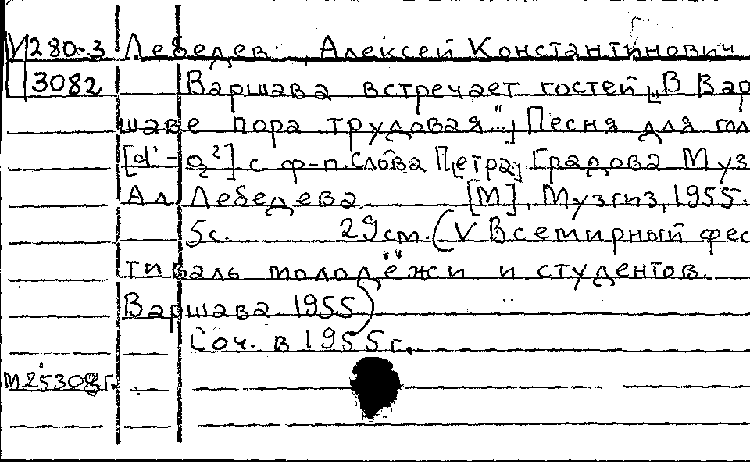 М280-3 Лебедев, Алексей Константинович
3082 Варшава встречает гостей ["В Вар
шаве пора трудовая"] Песня для гол
[d¹-g²] с ф-п. Слова Петра Градова Муз
Ал Лебедева [М], Музгиз, 1955.
5с. 29см. (V Всемирный фес
тиваль молодёжи и студентов.
Варшава 1955)
Соч. в 1955г.
М25308г.